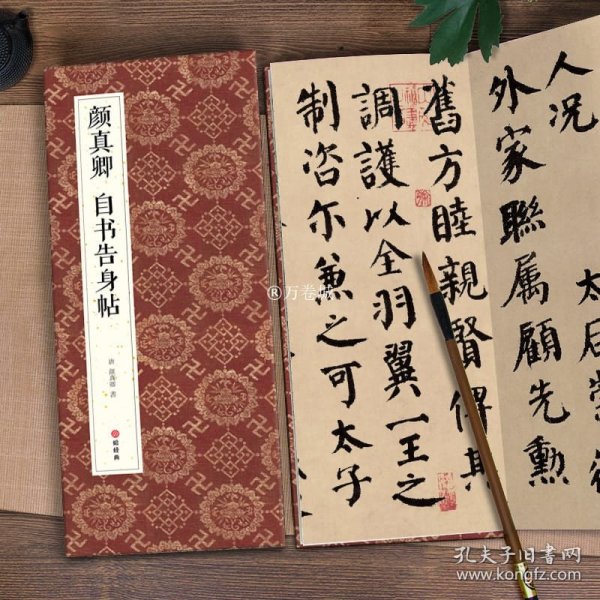 颜真卿 自书告身帖
唐 颜真卿 書
人况
外家聯属顧先勲
舊方睦親賢俾其
調護以全羽翼一王之
制咨尓兼之可太子
®万卷城
孔夫子旧书网
www.kongfz.com